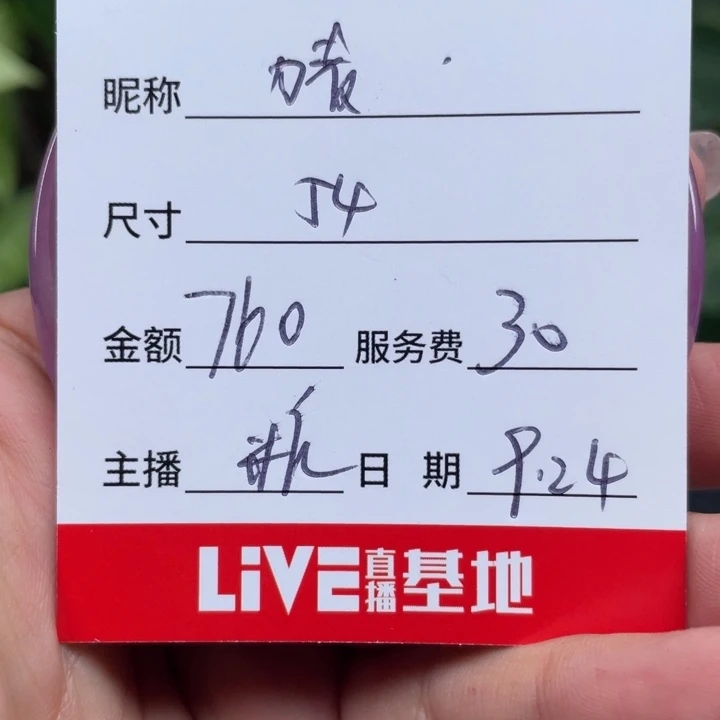 昵称
尺寸 54
金额 760 服务费 30
主播 日期 9.24
LiVE直播基地